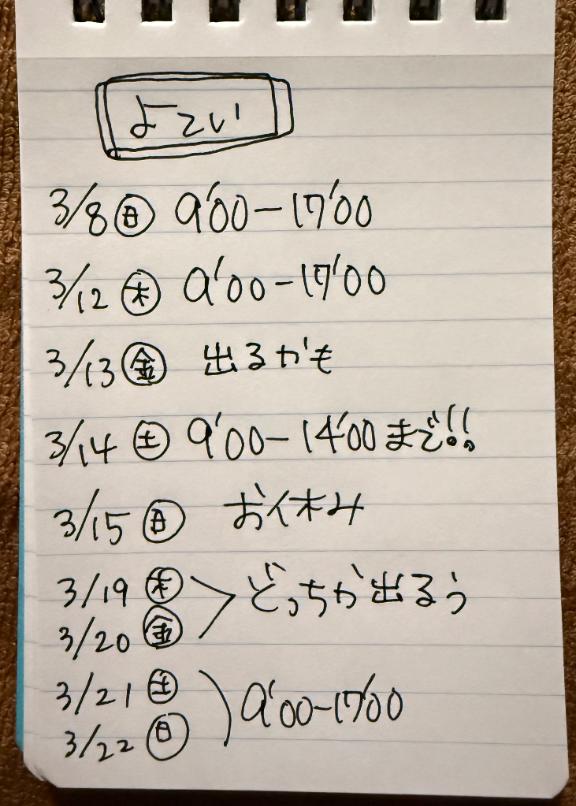 よてい
3/8 ㊐ 9'00-17'00
3/12 ㊍ 9'00-17'00
3/13 ㊎ 出るかも
3/14 ㊏ 9'00-14'00 まで!!
3/15 ㊐ お休み
3/19 ㊍
3/20 ㊎
どっちか出るぅ
3/21 ㊏
3/22 ㊐
9'00-17'00